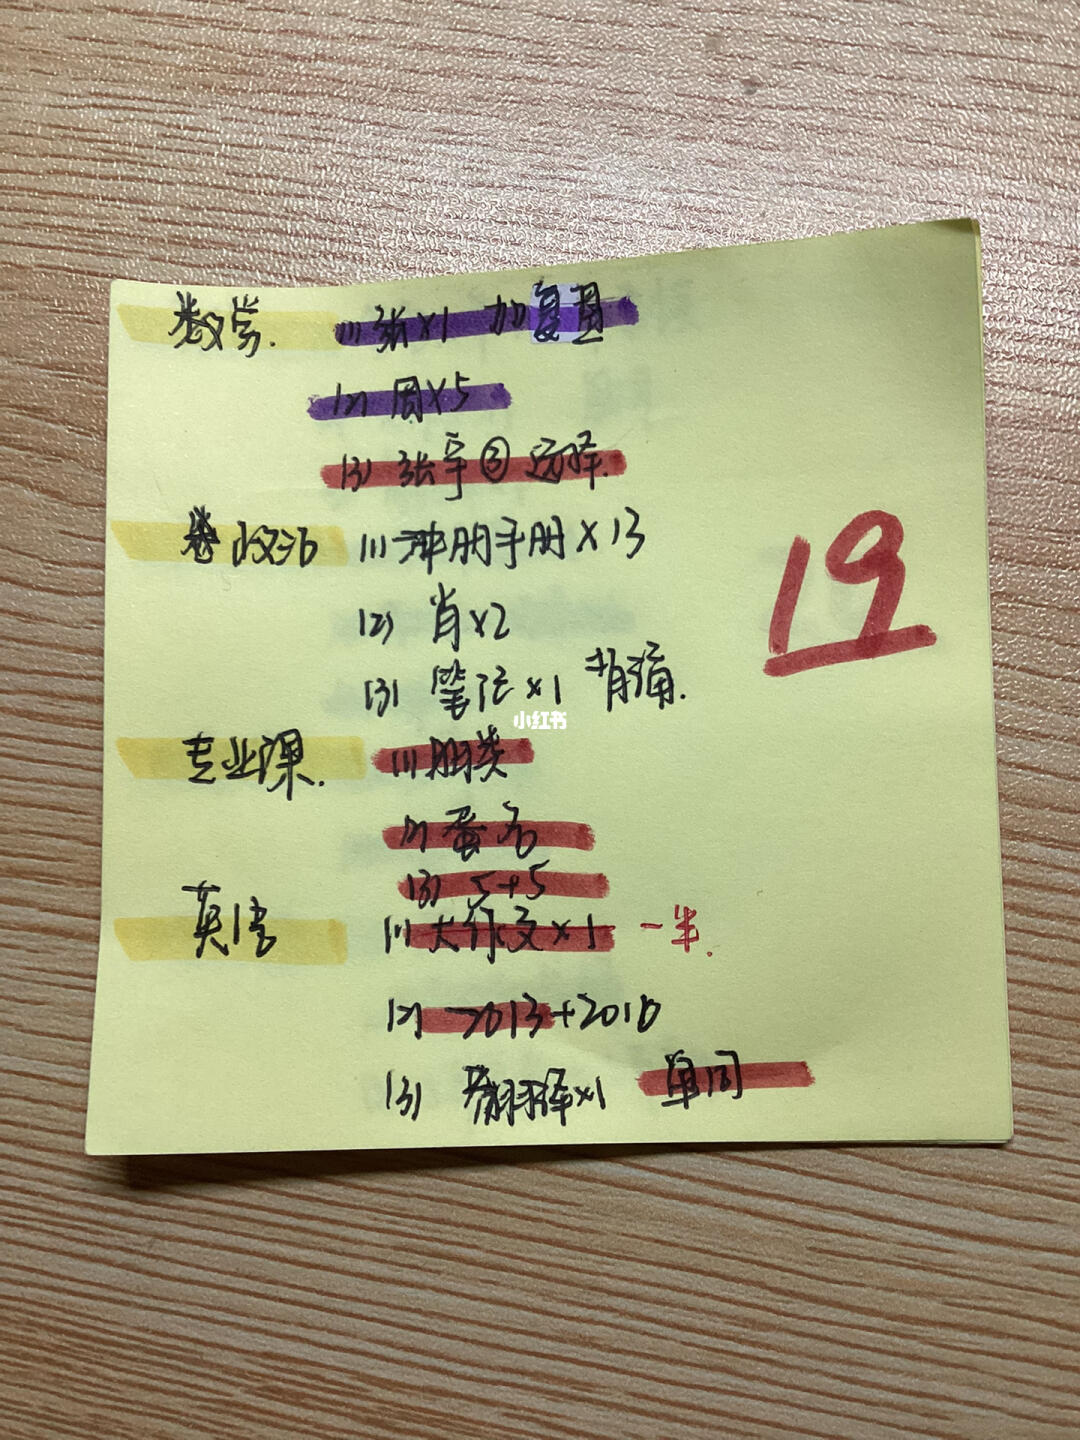 数学. (1) 张×1 加复盘
(2) 周×5
(3) 张宇③ 选择.
政治 (1) 冲刺手册×13
(2) 肖×2
(3) 笔记×1 背诵.
小红书
专业课. (1)
(2) 蛋白
(3) 5+5
英语 (1) 大作文×1 一半.
(2) 2013+2010
(3) 翻译×1 单词
19